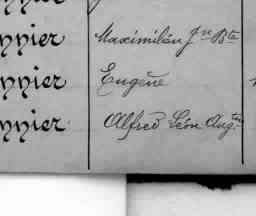 nnier Maximilien Jn Bte
nnier Eugène
nnier Alfred Léon Augtin